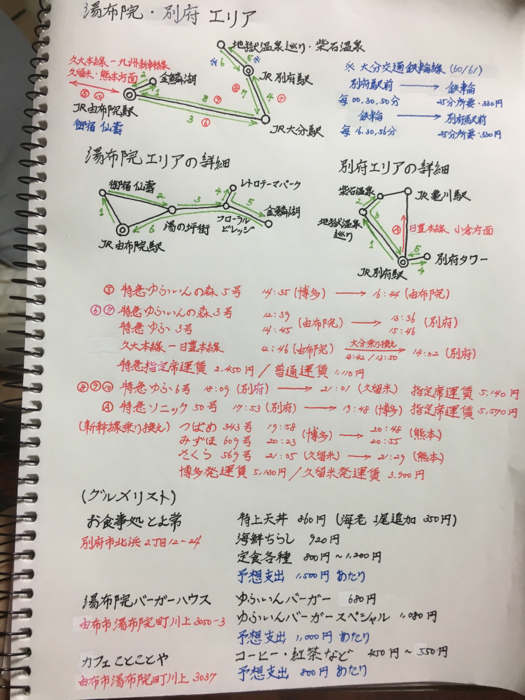 湯布院・別府 エリア
地獄温泉巡り・柴石温泉
久大本線ー九州新幹線
久留米・熊本方面
金鱗湖
JR由布院駅
御宿 仙壽
JR別府駅
JR大分駅
※ 大分交通 鉄輪線 (60/61)
別府駅前 → 鉄輪
毎 00.30.50分 25分所要・330円
鉄輪 → 別府駅前
毎 6.30.56分 25分所要・330円
湯布院 エリアの詳細
御宿 仙壽
レトロテーマパーク
湯の坪街
フローラルビレッジ
金鱗湖
JR由布院駅
別府エリアの詳細
柴石温泉
JR 亀川駅
地獄温泉巡り
④ 日置本線、小倉方面
別府タワー
JR別府駅
⑤ 特急ゆふいんの森 5号 14:35 (博多) → 16:44 (由布院)
⑥⑦ 特急ゆふいんの森 3号 12:39 (由布院) → 13:36 (別府)
特急ゆふ 3号 14:45 → 15:46
久大本線ー日置本線 12:46 (由布院) 大分乗り換え → 14:02 (別府)
特急指定席運賃 2,450円 / 普通運賃 1,110円
特急ゆふ6号 18:09 (別府) → 21:01 (久留米) 指定席運賃 5,140円
④ 特急ソニック 50号 17:53 (別府) → 19:48 (博多) 指定席運賃 5,570円
(新幹線乗り換え) つばめ 343号 19:58 (博多) → 20:48 (熊本)
みずほ 609号 20:23 → 20:55
さくら 569号 21:05 (久留米) → 21:29 (熊本)
博多発運賃 5,130円 / 久留米発運賃 3,900円
(グルメリスト)
お食事処とよ常 特上天丼 860円 (海老 1尾追加 350円)
別府市北浜 2丁目12-24 海鮮ちらし 920円
定食各種 800円~1,200円
予想支出 1,500円 あたり
湯布院バーガーハウス ゆふいんバーガー 680円
由布市湯布院町川上 3050-3 ゆふいんバーガースペシャル 1,080円
予想支出 1,000円 あたり
カフェことことや コーヒー・紅茶など 450円~550円
由布市湯布院町川上 3037 予想支出 800円 あたり